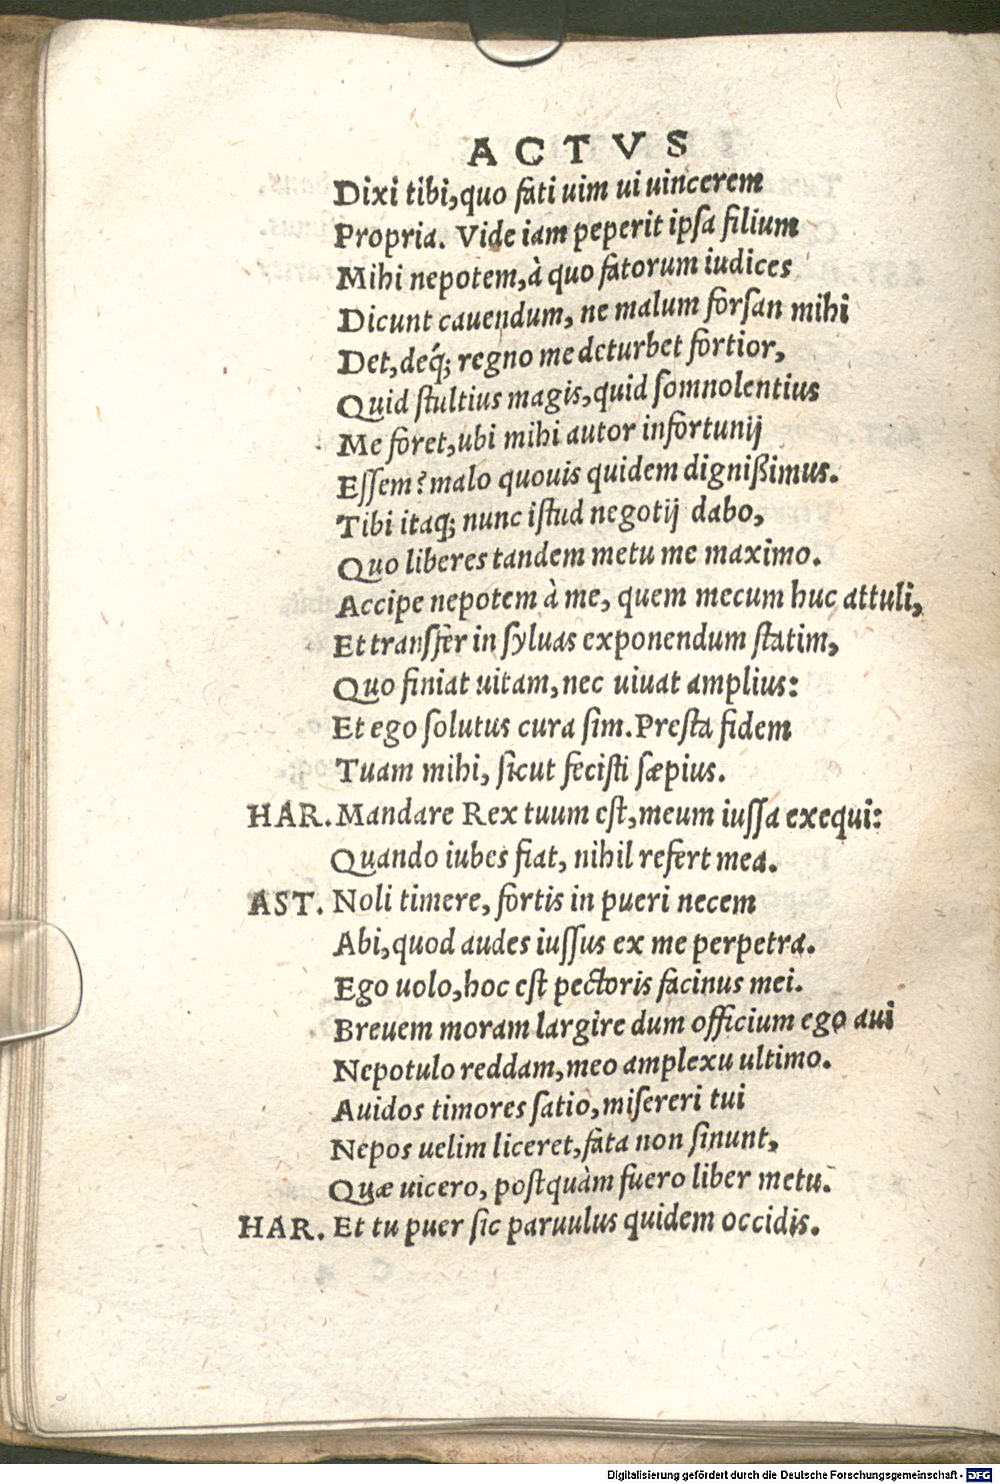 ACTVS
Dixi tibi, quo fati uim ui uincerem
Propria. Vide iam peperit ipsa filium
Mihi nepotem, à quo fatorum iudices
Dicunt cauendum, ne malum forsan mihi
Det, deq́; regno me deturbet fortior,
Quid stultius magis, quid somnolentius
Me foret, ubi mihi autor infortunij
Essem? malo quouis quidem dignißimus.
Tibi itaq; nunc istud negotij dabo,
Quo liberes tandem metu me maximo.
Accipe nepotem à me, quem mecum huc attuli,
Et transfer in syluas exponendum statim,
Quo finiat uitam, nec uiuat amplius:
Et ego solutus cura sim. Presta fidem
Tuam mihi, sicut fecisti sæpius.
HAR. Mandare Rex tuum est, meum iussa exequi:
Quando iubes fiat, nihil refert mea.
AST. Noli timere, fortis in pueri necem
Abi, quod audes iussus ex me perpetra.
Ego uolo, hoc est pectoris facinus mei.
Breuem moram largire dum officium ego aui
Nepotulo reddam, meo amplexu ultimo.
Auidos timores satio, misereri tui
Nepos uelim liceret, fata non sinunt,
Quæ uicero, postquàm fuero liber metu.
HAR. Et tu puer sic paruulus quidem occidis.
Digitalisierung gefördert durch die Deutsche Forschungsgemeinschaft - DFG